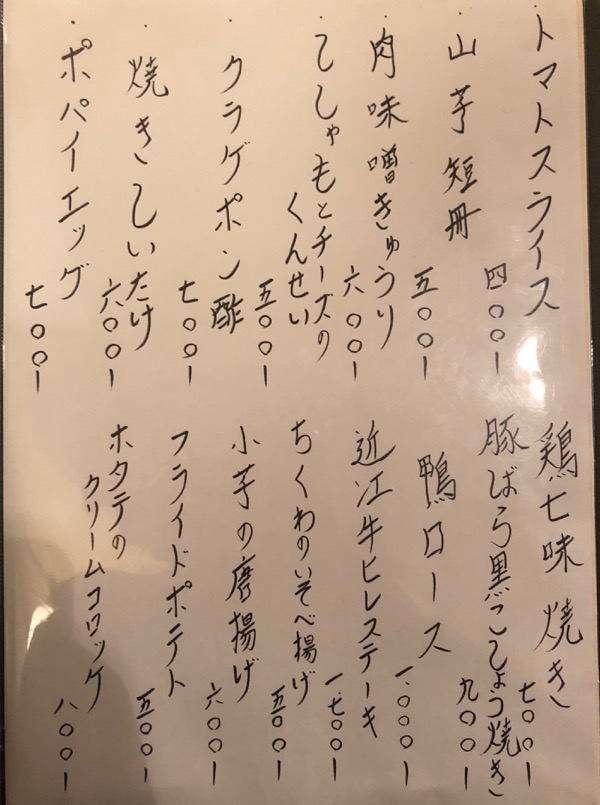 ・トマトスライス
四〇〇ー
・山芋短冊
五〇〇ー
・肉味噌きゅうり
六〇〇ー
・ししゃもとチーズの
くんせい
五〇〇ー
・クラゲポン酢
七〇〇ー
・焼きしいたけ
六〇〇ー
・ポパイエッグ
七〇〇ー
鶏七味焼き
七〇〇ー
豚ばら黒こしょう焼き
九〇〇ー
鴨ロース
一.〇〇〇ー
近江牛ヒレステーキ
一.七〇〇ー
ちくわのいそべ揚げ
五〇〇ー
小芋の唐揚げ
六〇〇ー
フライドポテト
五〇〇ー
ホタテの
クリームコロッケ
八〇〇ー